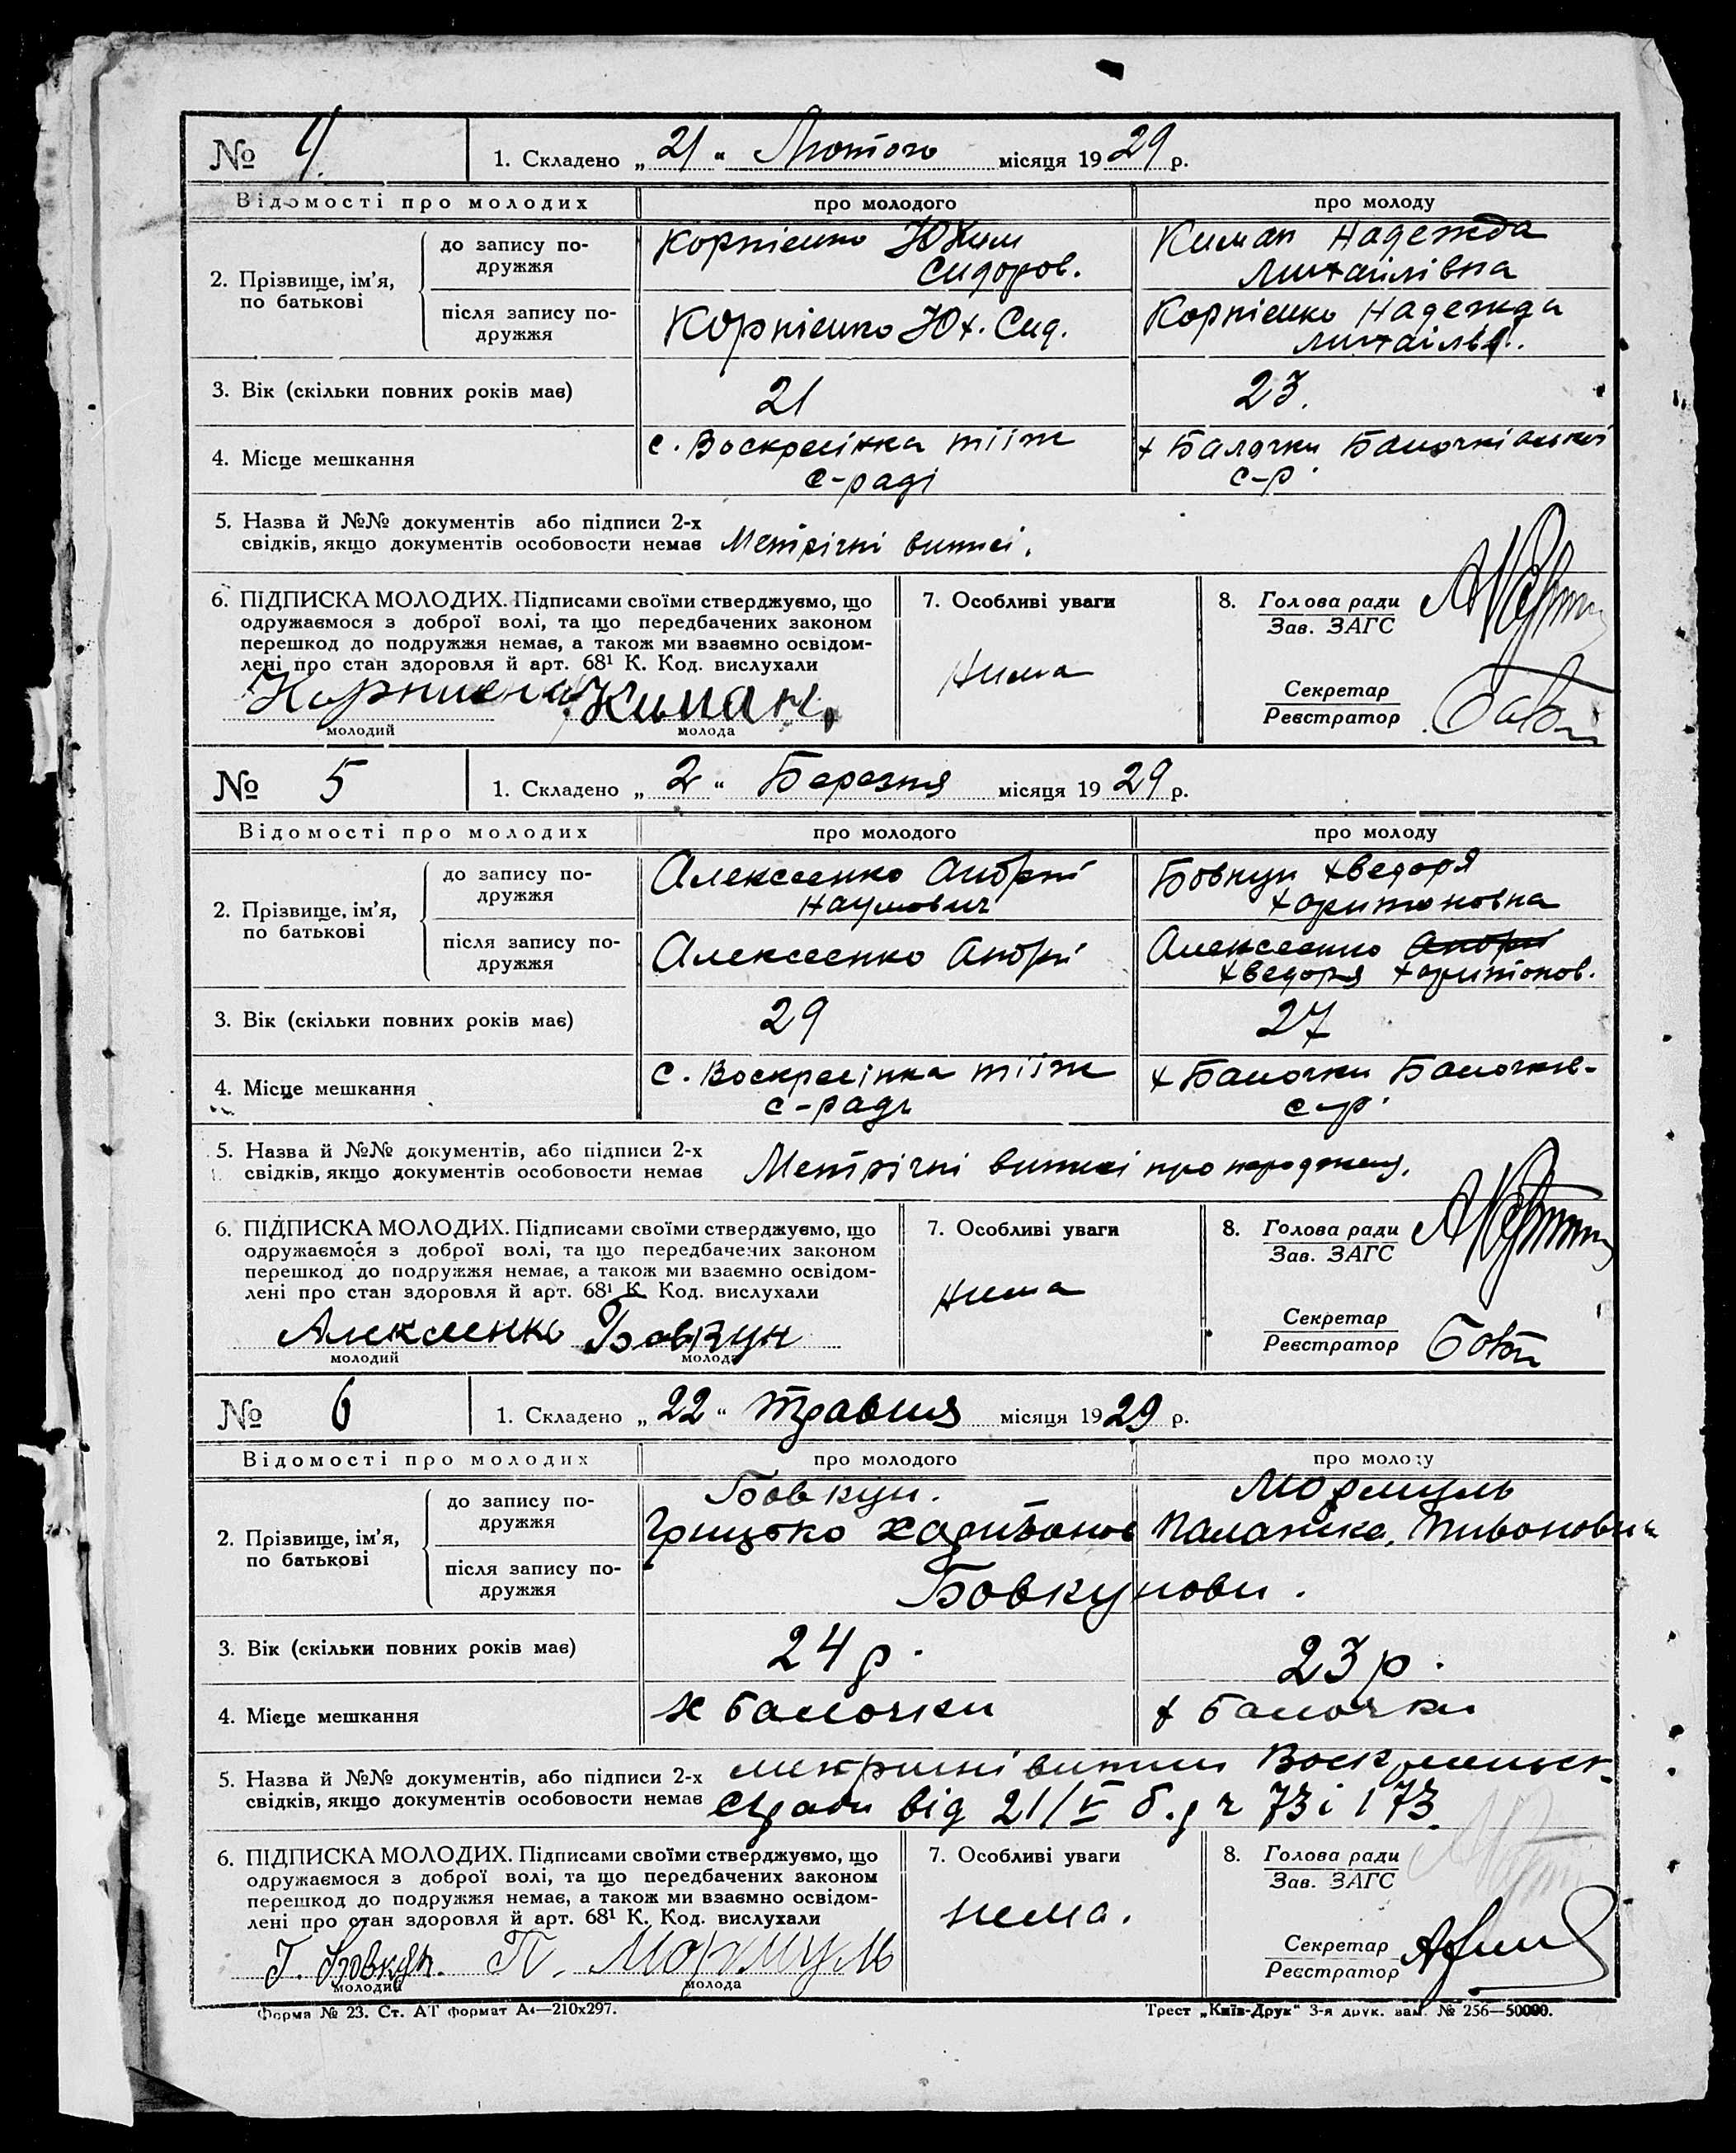 № 4. 1. Складено „21“ Лютого місяця 1929 р.
Відомості про молодих про молодого про молоду
2. Прізвище, ім’я, по батькові
до запису подружжя
Корпієнко Юхим
Сидоров.
Киман Надежда
Михаілівна
після запису подружжя
Корпієнко Юх. Сид.
Корпієнко Надежда
Михаілів.
3. Вік (скільки повних років має) 21 23.
4. Місце мешкання
с. Воскресінка тііж
с-раді
х Балочки Балочкіанської
с-р.
5. Назва й №№ документів або підписи 2-х
свідків, якщо документів особовости немає Метрічні виписі.
6. ПІДПИСКА МОЛОДИХ. Підписами своїми стверджуємо, що
одружаємося з доброї волі, та що передбачених законом
перешкод до подружжя немає, а також ми взаємно освідом-
лені про стан здоровля й арт. 68¹ К. Код. вислухали
Киман.
молодий молода
7. Особливі уваги
Нима
8. Голова ради
Зав. ЗАГС
Секретар
Реєстратор
№ 5 1. Складено „2“ Березня місяця 1929 р.
Відомості про молодих про молодого про молоду
2. Прізвище, ім’я, по батькові
до запису подружжя
Алексеенко Андрі
Наумович
Бовкун Хведоря
Харитоновна
після запису подружжя
Алексеенко Андрі
Алексеенко Андрі
Хведоря Харитонов.
3. Вік (скільки повних років має) 29 27
4. Місце мешкання
с. Воскресінка тііж
с-раді
х Балочки Балочків-
с-р.
5. Назва й №№ документів, або підписи 2-х
свідків, якщо документів особовости немає Метрічні виписі про народження.
6. ПІДПИСКА МОЛОДИХ. Підписами своїми стверджуємо, що
одружаємося з доброї волі, та що передбачених законом
перешкод до подружжя немає, а також ми взаємно освідом-
лені про стан здоровля й арт. 68¹ К. Код. вислухали
Алексеенко Бовкун
молодий молода
7. Особливі уваги
Нима
8. Голова ради
Зав. ЗАГС
Секретар
Реєстратор
№ 6 1. Складено „22“ травня місяця 1929 р.
Відомості про молодих про молодого про молоду
2. Прізвище, ім’я, по батькові
до запису подружжя
Бовкун.
Грицько Харитонов
Мормуль
Палажка
після запису подружжя
Бовкунови.
3. Вік (скільки повних років має) 24 р. 23 р.
4. Місце мешкання х Балочки х Балочки
5. Назва й №№ документів, або підписи 2-х
свідків, якщо документів особовости немає
метричні виписи
с/ради від 21/V б.р ч 73 і 173.
6. ПІДПИСКА МОЛОДИХ. Підписами своїми стверджуємо, що
одружаємося з доброї волі, та що передбачених законом
перешкод до подружжя немає, а також ми взаємно освідом-
лені про стан здоровля й арт. 68¹ К. Код. вислухали
Г. Бовкун. П. Мормуль
молодий молода
7. Особливі уваги
нема.
8. Голова ради
Зав. ЗАГС
Секретар
Реєстратор
Форма № 23. Ст. АТ формат А4—210х297. Трест „Київ-Друк“ 3-я друк. зам. № 256—50000.